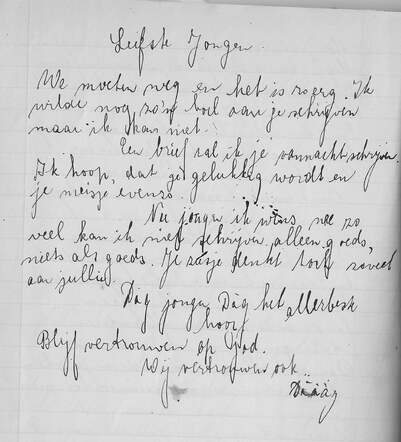 Liefste Jongen
We moeten weg en het is zoo erg. Ik
wilde nog zo'n boel aan je schrijven
maar ik kan niet.
Een brief zal ik je vannacht schrijven.
Ik hoop, dat gij gelukkig wordt en
je meisje evenzo.
Nu jongen ik wens, nee zo
veel kan ik niet schrijven, alleen goeds,
niets als goeds. Je zusje denkt toch zoveel
aan jullie.
Dag jongen Dag het allerbeste
hoor
Blijf vertrouwen op God.
Wij vertrouwen ook..
Dááág